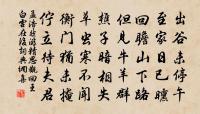 出谷未停午
至家日已曛
回瞻山下路
但見牛羊群
樵子暗相失
草虫寒不聞
衡門猶未掩
佇立待夫君
孟浩然游精思觀回王
白雲在後詞典網集